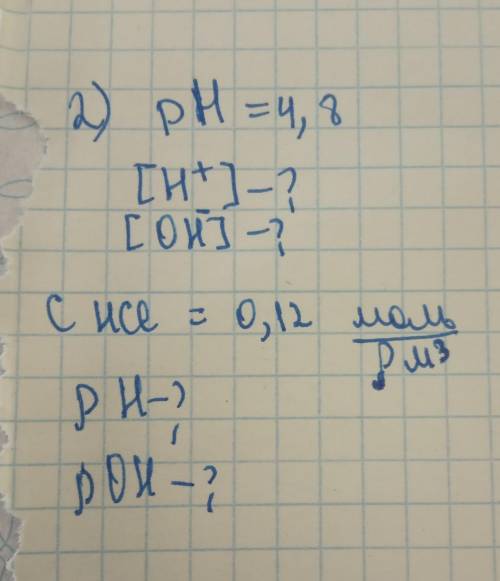 2) pH = 4,8
[H⁺] - ?
[OH⁻] - ?
C HCl = 0,12 моль/дм³
pH - ?
pOH - ?